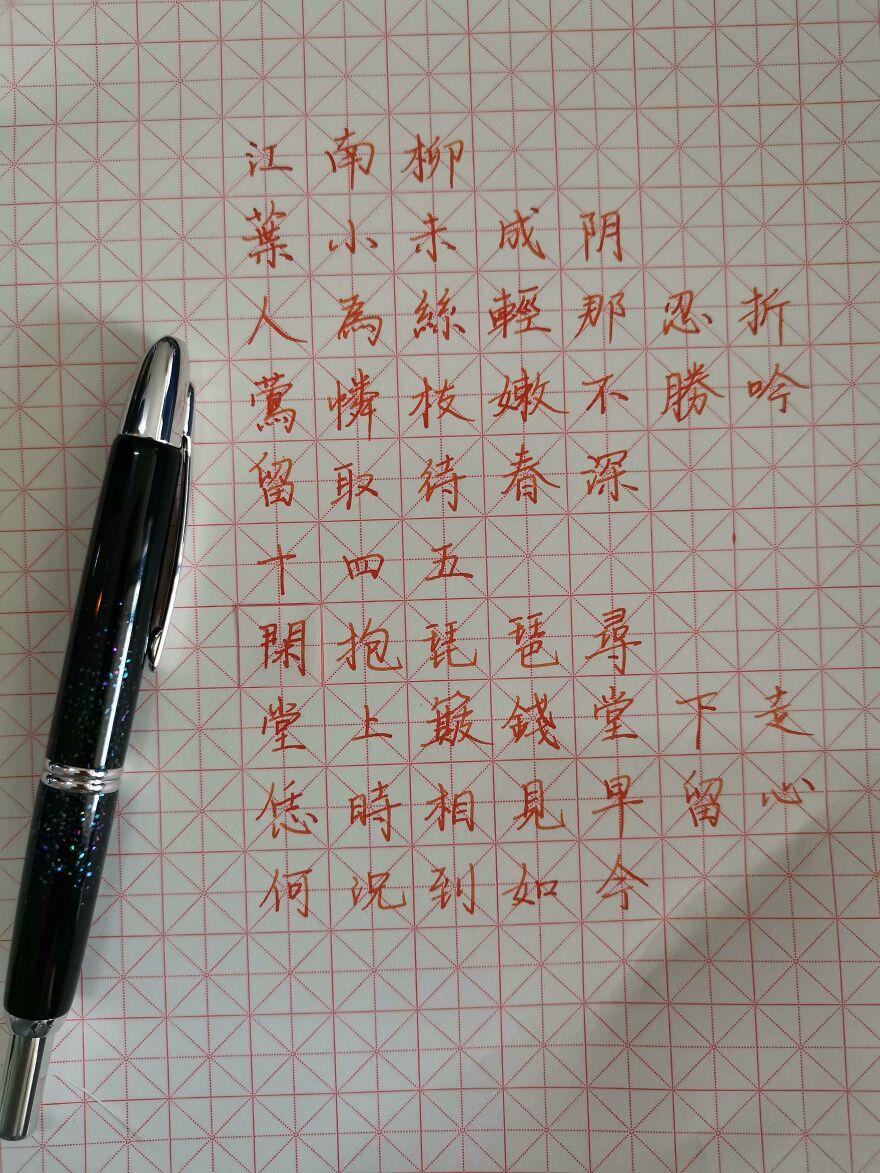 江南柳
葉小未成阴
人為絲輕那忍折
鶯憐枝嫩不勝吟
留取待春深
十四五
閑抱琵琶尋
堂上簸錢堂下走
恁時相見早留心
何況到如今